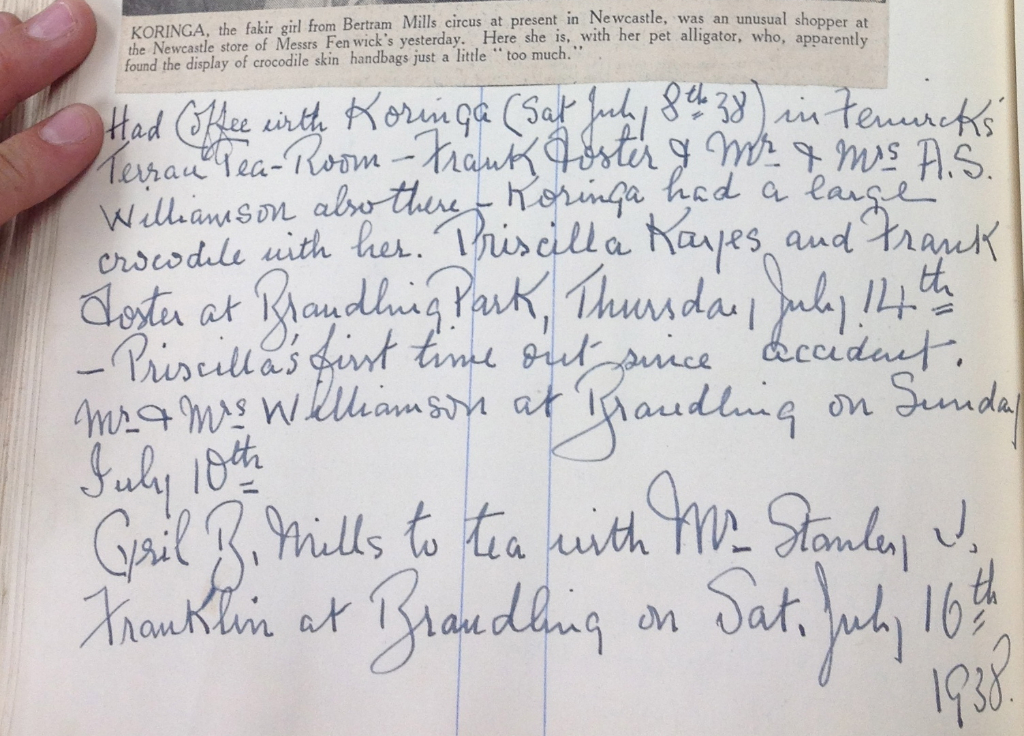 KORINGA, the fakir girl from Bertram Mills circus at present in Newcastle, was an unusual shopper at
the Newcastle store of Messrs Fenwick's yesterday. Here she is, with her pet alligator, who, apparently
found the display of crocodile skin handbags just a little "too much."
Had Coffee with Koringa (Sat July 8th 38) in Fenwick's
Terrace Tea-Room - Frank Foster & Mr & Mrs A.S.
Williamson also there - Koringa had a large
crocodile with her. Priscilla Kayes and Frank
Foster at Brandling Park, Thursday July 14th
- Priscilla's first time out since accident.
Mr & Mrs Williamson at Brandling on Sunday
July 10th
Cyril B. Mills to tea with Mr Stanley J.
Franklin at Brandling on Sat. July 16th
1938.